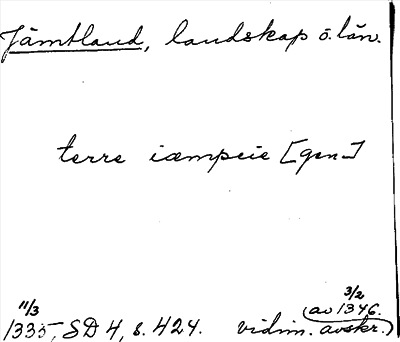 Jämtland, landskap o. län.
terre iæmpcie [gen.]
11/3 3/2
1335, SD 4, s. 424. vidim. avskr. (av 1346.)